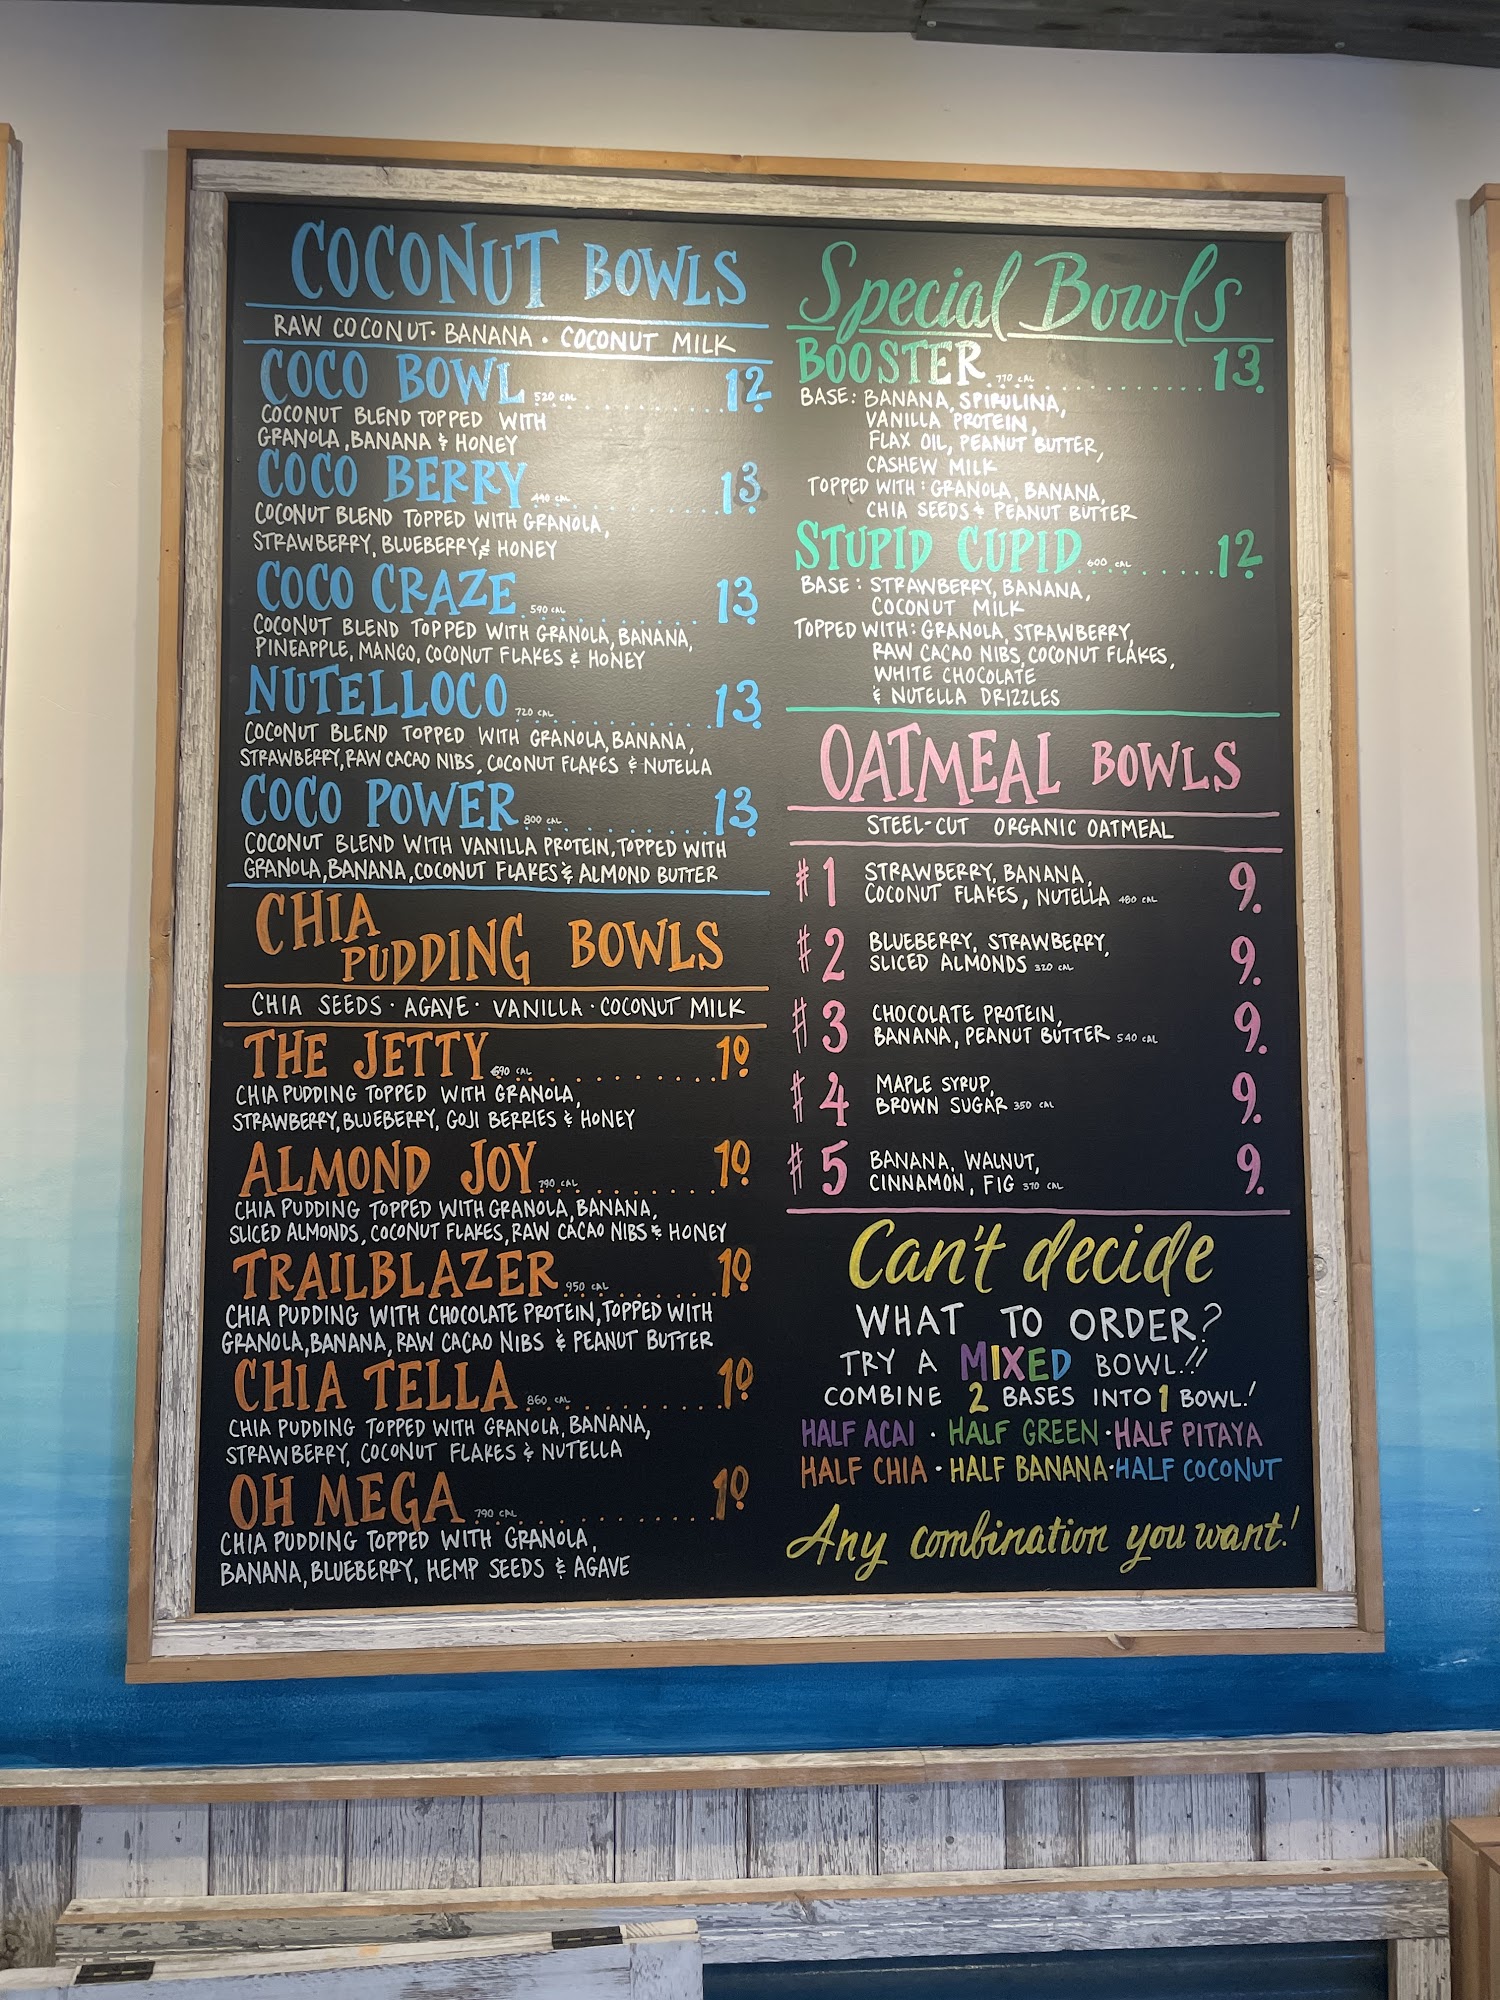 COCONUT BOWLS
RAW COCONUT · BANANA · COCONUT MILK
COCO BOWL 520 CAL 12.
COCONUT BLEND TOPPED WITH
GRANOLA, BANANA & HONEY
COCO BERRY 490 CAL 13.
COCONUT BLEND TOPPED WITH GRANOLA,
STRAWBERRY, BLUEBERRY, & HONEY
COCO CRAZE 590 CAL 13.
COCONUT BLEND TOPPED WITH GRANOLA, BANANA,
PINEAPPLE, MANGO, COCONUT FLAKES & HONEY
NUTELLOCO 720 CAL 13.
COCONUT BLEND TOPPED WITH GRANOLA, BANANA,
STRAWBERRY, RAW CACAO NIBS, COCONUT FLAKES & NUTELLA
COCO POWER 800 CAL 13.
COCONUT BLEND WITH VANILLA PROTEIN, TOPPED WITH
GRANOLA, BANANA, COCONUT FLAKES & ALMOND BUTTER
CHIA PUDDING BOWLS
CHIA SEEDS · AGAVE · VANILLA · COCONUT MILK
THE JETTY 690 CAL 10.
CHIA PUDDING TOPPED WITH GRANOLA,
STRAWBERRY, BLUEBERRY, GOJI BERRIES & HONEY
ALMOND JOY 790 CAL 10.
CHIA PUDDING TOPPED WITH GRANOLA, BANANA,
SLICED ALMONDS, COCONUT FLAKES, RAW CACAO NIBS & HONEY
TRAILBLAZER 950 CAL 10.
CHIA PUDDING WITH CHOCOLATE PROTEIN, TOPPED WITH
GRANOLA, BANANA, RAW CACAO NIBS & PEANUT BUTTER
CHIA TELLA 860 CAL 10.
CHIA PUDDING TOPPED WITH GRANOLA, BANANA,
STRAWBERRY, COCONUT FLAKES & NUTELLA
OH MEGA 790 CAL 10.
CHIA PUDDING TOPPED WITH GRANOLA,
BANANA, BLUEBERRY, HEMP SEEDS & AGAVE
Special Bowls
BOOSTER 770 CAL 13.
BASE: BANANA, SPIRULINA,
VANILLA PROTEIN,
FLAX OIL, PEANUT BUTTER,
CASHEW MILK
TOPPED WITH: GRANOLA, BANANA,
CHIA SEEDS & PEANUT BUTTER
STUPID CUPID 600 CAL 12.
BASE: STRAWBERRY, BANANA,
COCONUT MILK
TOPPED WITH: GRANOLA, STRAWBERRY,
RAW CACAO NIBS, COCONUT FLAKES,
WHITE CHOCOLATE
& NUTELLA DRIZZLES
OATMEAL BOWLS
STEEL-CUT ORGANIC OATMEAL
#1 STRAWBERRY, BANANA, 9.
COCONUT FLAKES, NUTELLA 480 CAL
#2 BLUEBERRY, STRAWBERRY, 9.
SLICED ALMONDS 320 CAL
#3 CHOCOLATE PROTEIN, 9.
BANANA, PEANUT BUTTER 540 CAL
#4 MAPLE SYRUP, 9.
BROWN SUGAR 350 CAL
#5 BANANA, WALNUT, 9.
CINNAMON, FIG 370 CAL
Can't decide
WHAT TO ORDER?
TRY A MIXED BOWL!!
COMBINE 2 BASES INTO 1 BOWL!
HALF ACAI · HALF GREEN · HALF PITAYA
HALF CHIA · HALF BANANA · HALF COCONUT
Any combination you want!